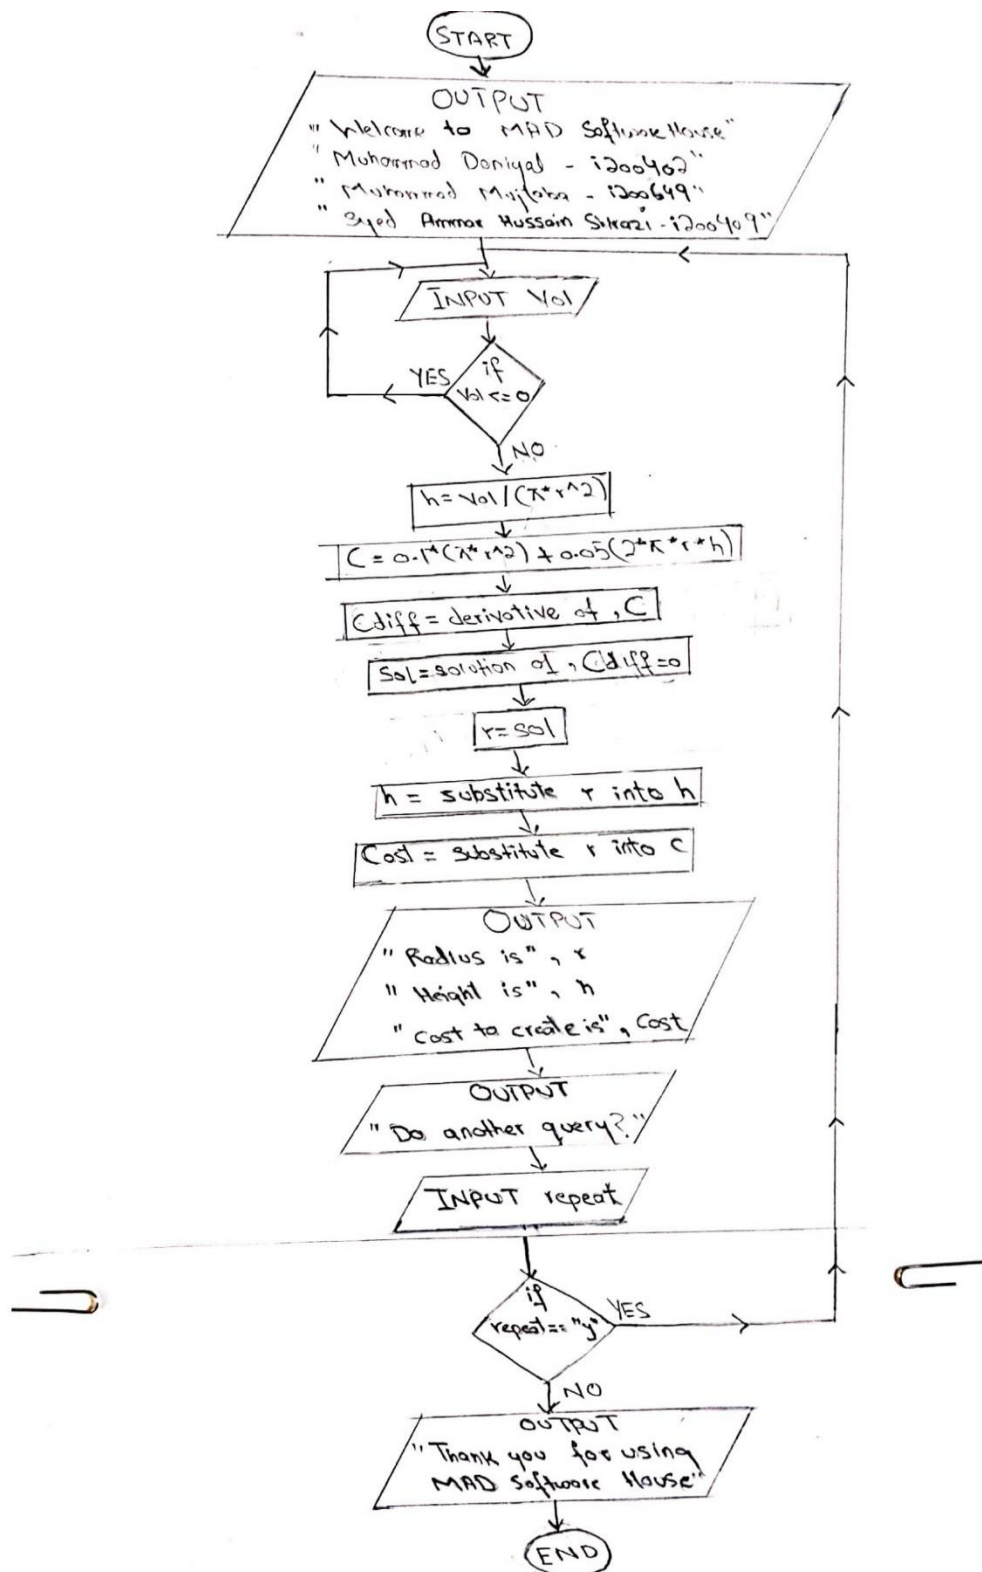 START
OUTPUT
"Welcome to MAD Software House"
"Muhammad Daniyal - i200402"
"Muhammad Mujtaba - i200649"
"Syed Ammar Hussain Shirazi - i200409"
INPUT Vol
if
Vol <= 0
YES
NO
h = Vol / (π*r^2)
C = 0.1*(π*r^2) + 0.05(2*π*r*h)
Cdiff = derivative of, C
Sol = solution of, Cdiff=0
r = sol
h = substitute r into h
Cost = substitute r into C
OUTPUT
"Radius is", r
"Height is", h
"Cost to create is", Cost
OUTPUT
"Do another query?"
INPUT repeat
if
repeat == "y"
YES
NO
OUTPUT
"Thank you for using
MAD Software House"
END